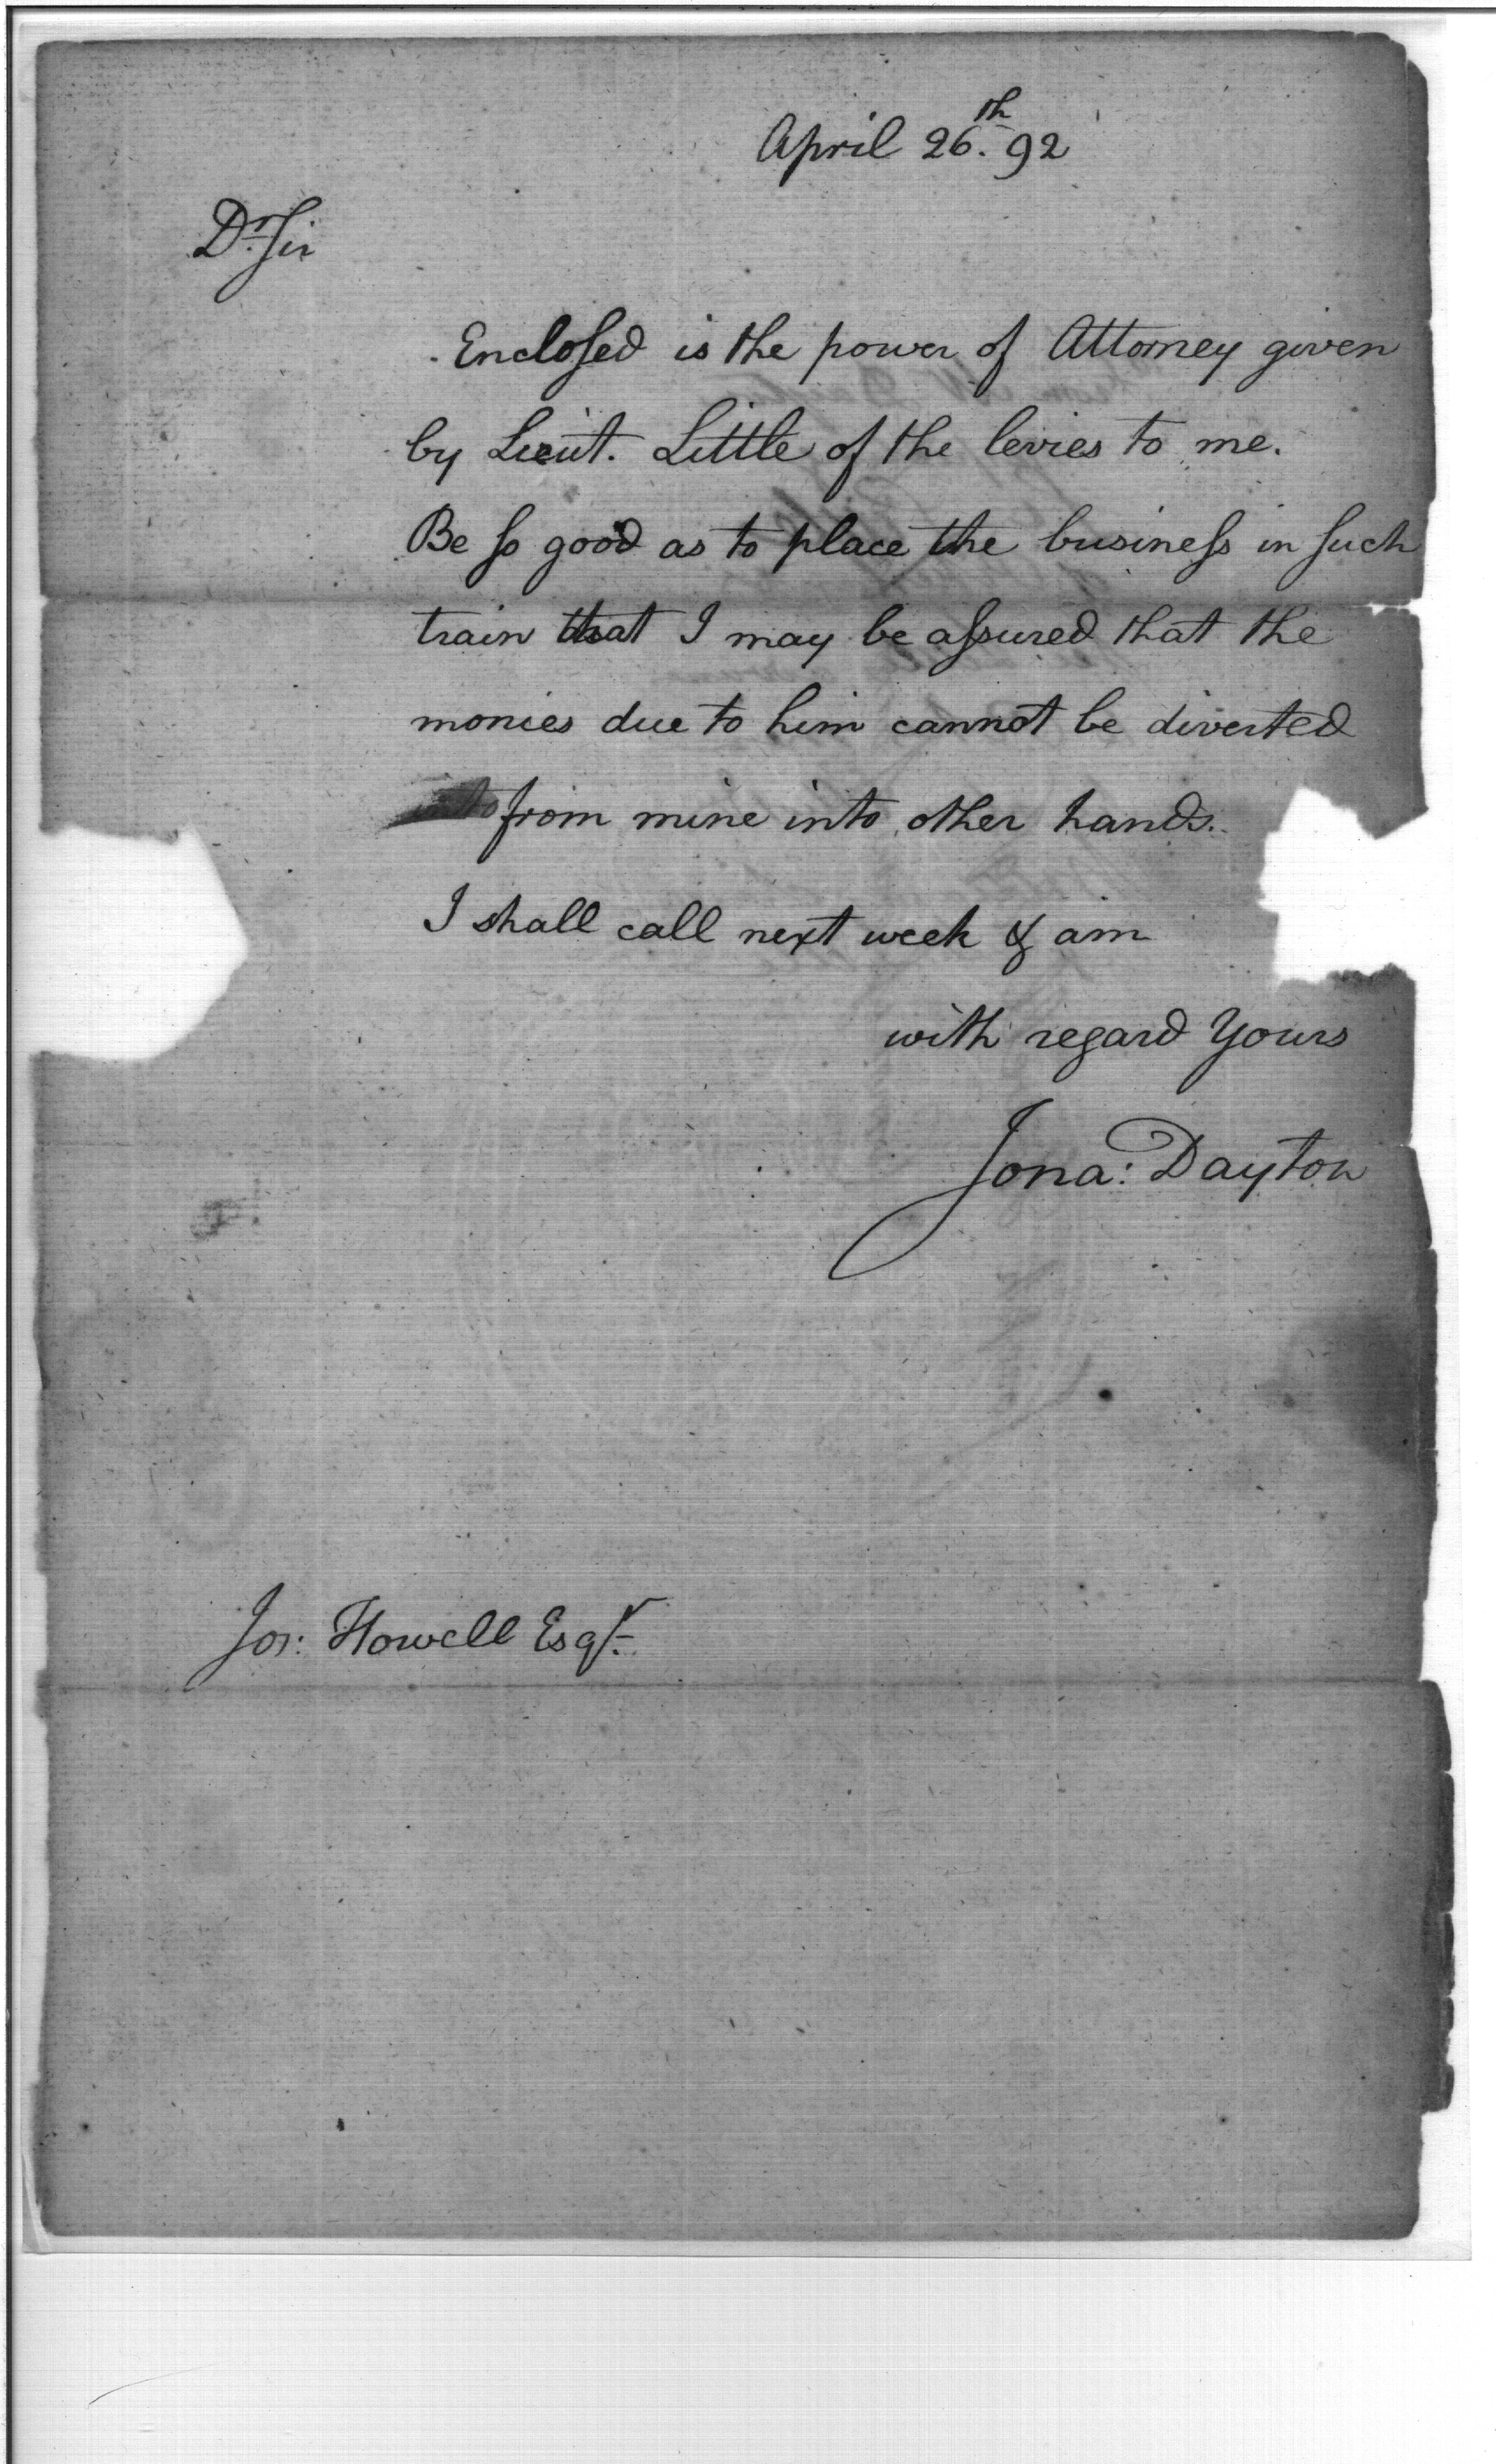 April 26.th 92
Dr. Sir
Enclosed is the power of Attorney given
by Lieut. Little of the levies to me.
Be so good as to place the business in such
train that I may be assured that the
monies due to him cannot be diverted
from mine into other hands.
I shall call next week & am
with regard Yours
Jona: Dayton
Jos: Howell Esqr.